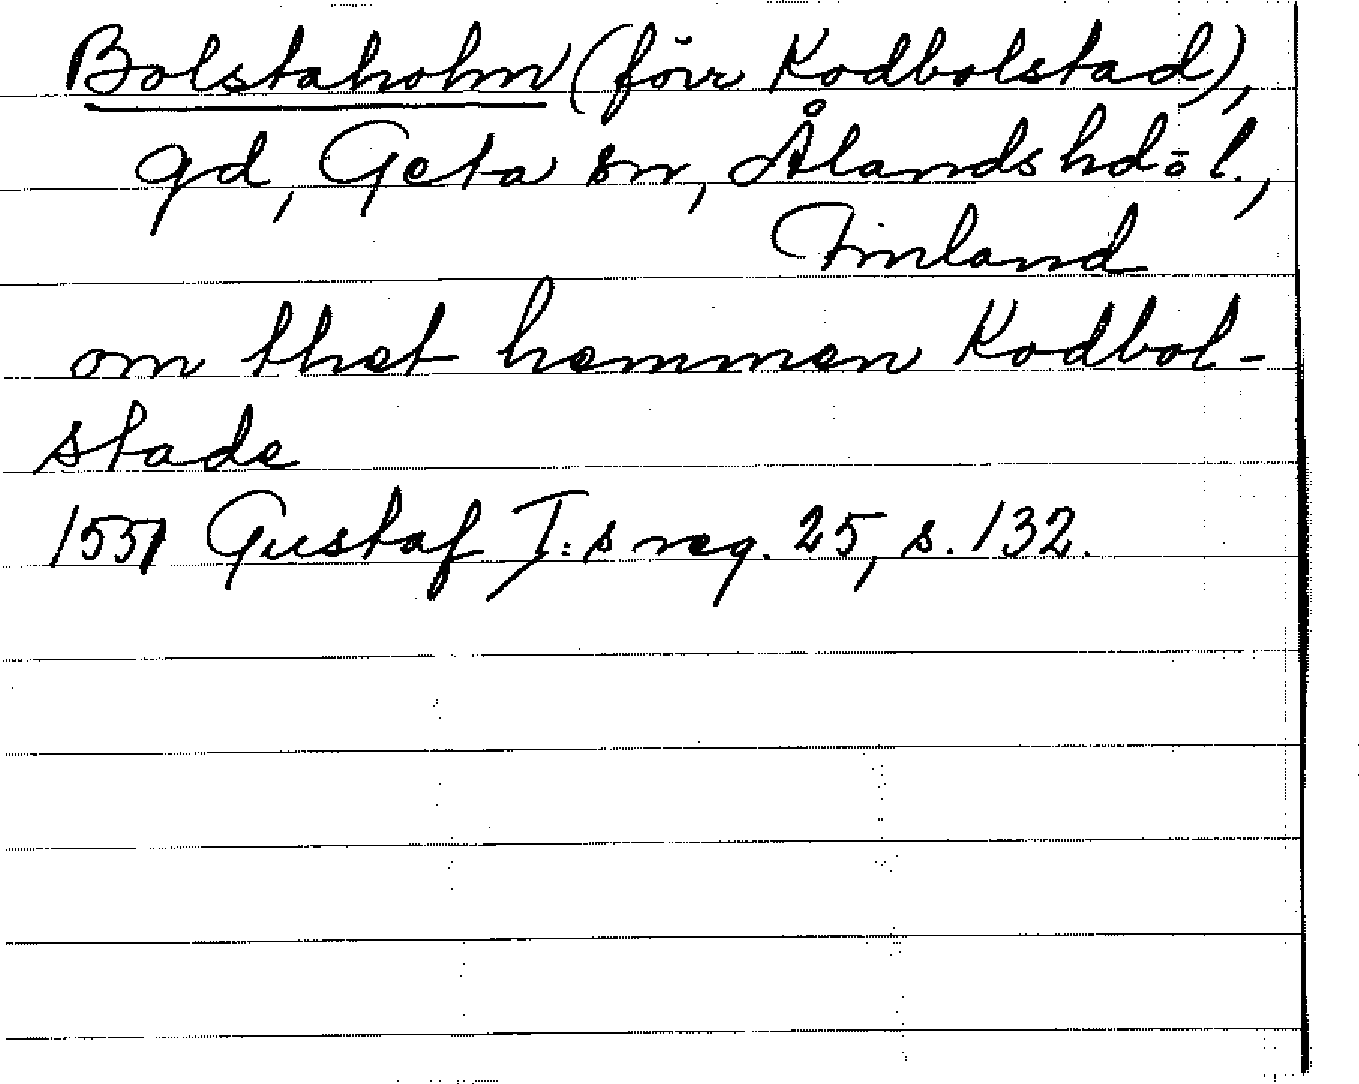 Bolstaholm (förr Kodbolstad),
gd, Geta sn, Ålands hd o l.,
Finland
om thet hemman Kodbol-
stade
1551 Gustaf I:s reg. 25, s. 132.